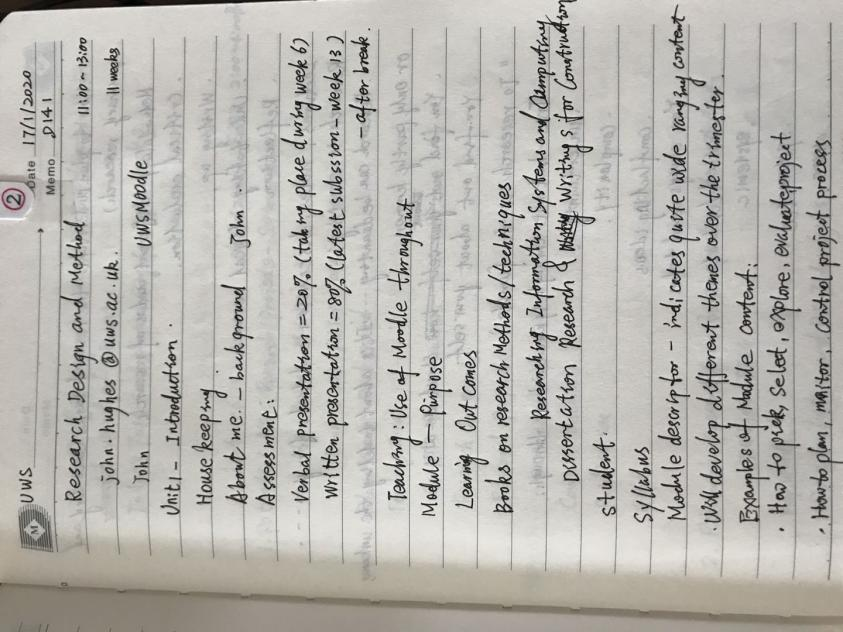 2
UWS
Date 17/1/2020
Memo D141
Research Design and Method 11:00~13:00
john.hughes@uws.ac.uk. 11 weeks
John UWSMoodle
Unit1 - Introduction.
House keeping
About me. - background John.
Assessment:
Verbal presentation = 20% (taking place during week 6)
Written presentation = 80% (latest subssion - week 13)
- after break.
Teaching: Use of Moodle throughout
Module - Purpose
Learing Out comes
Books on research Methods/techniques
Researching Information Systems and Computing
Dissertation Research & Writings for Construction
Student.
Syllabus
Module descriptor - indicates quite wide ranging content
· Will develop different themes over the trimester.
Examples of Module Content:
· How to pick, Selet, explore, evaluate project
· How to plan, monitor, control project process